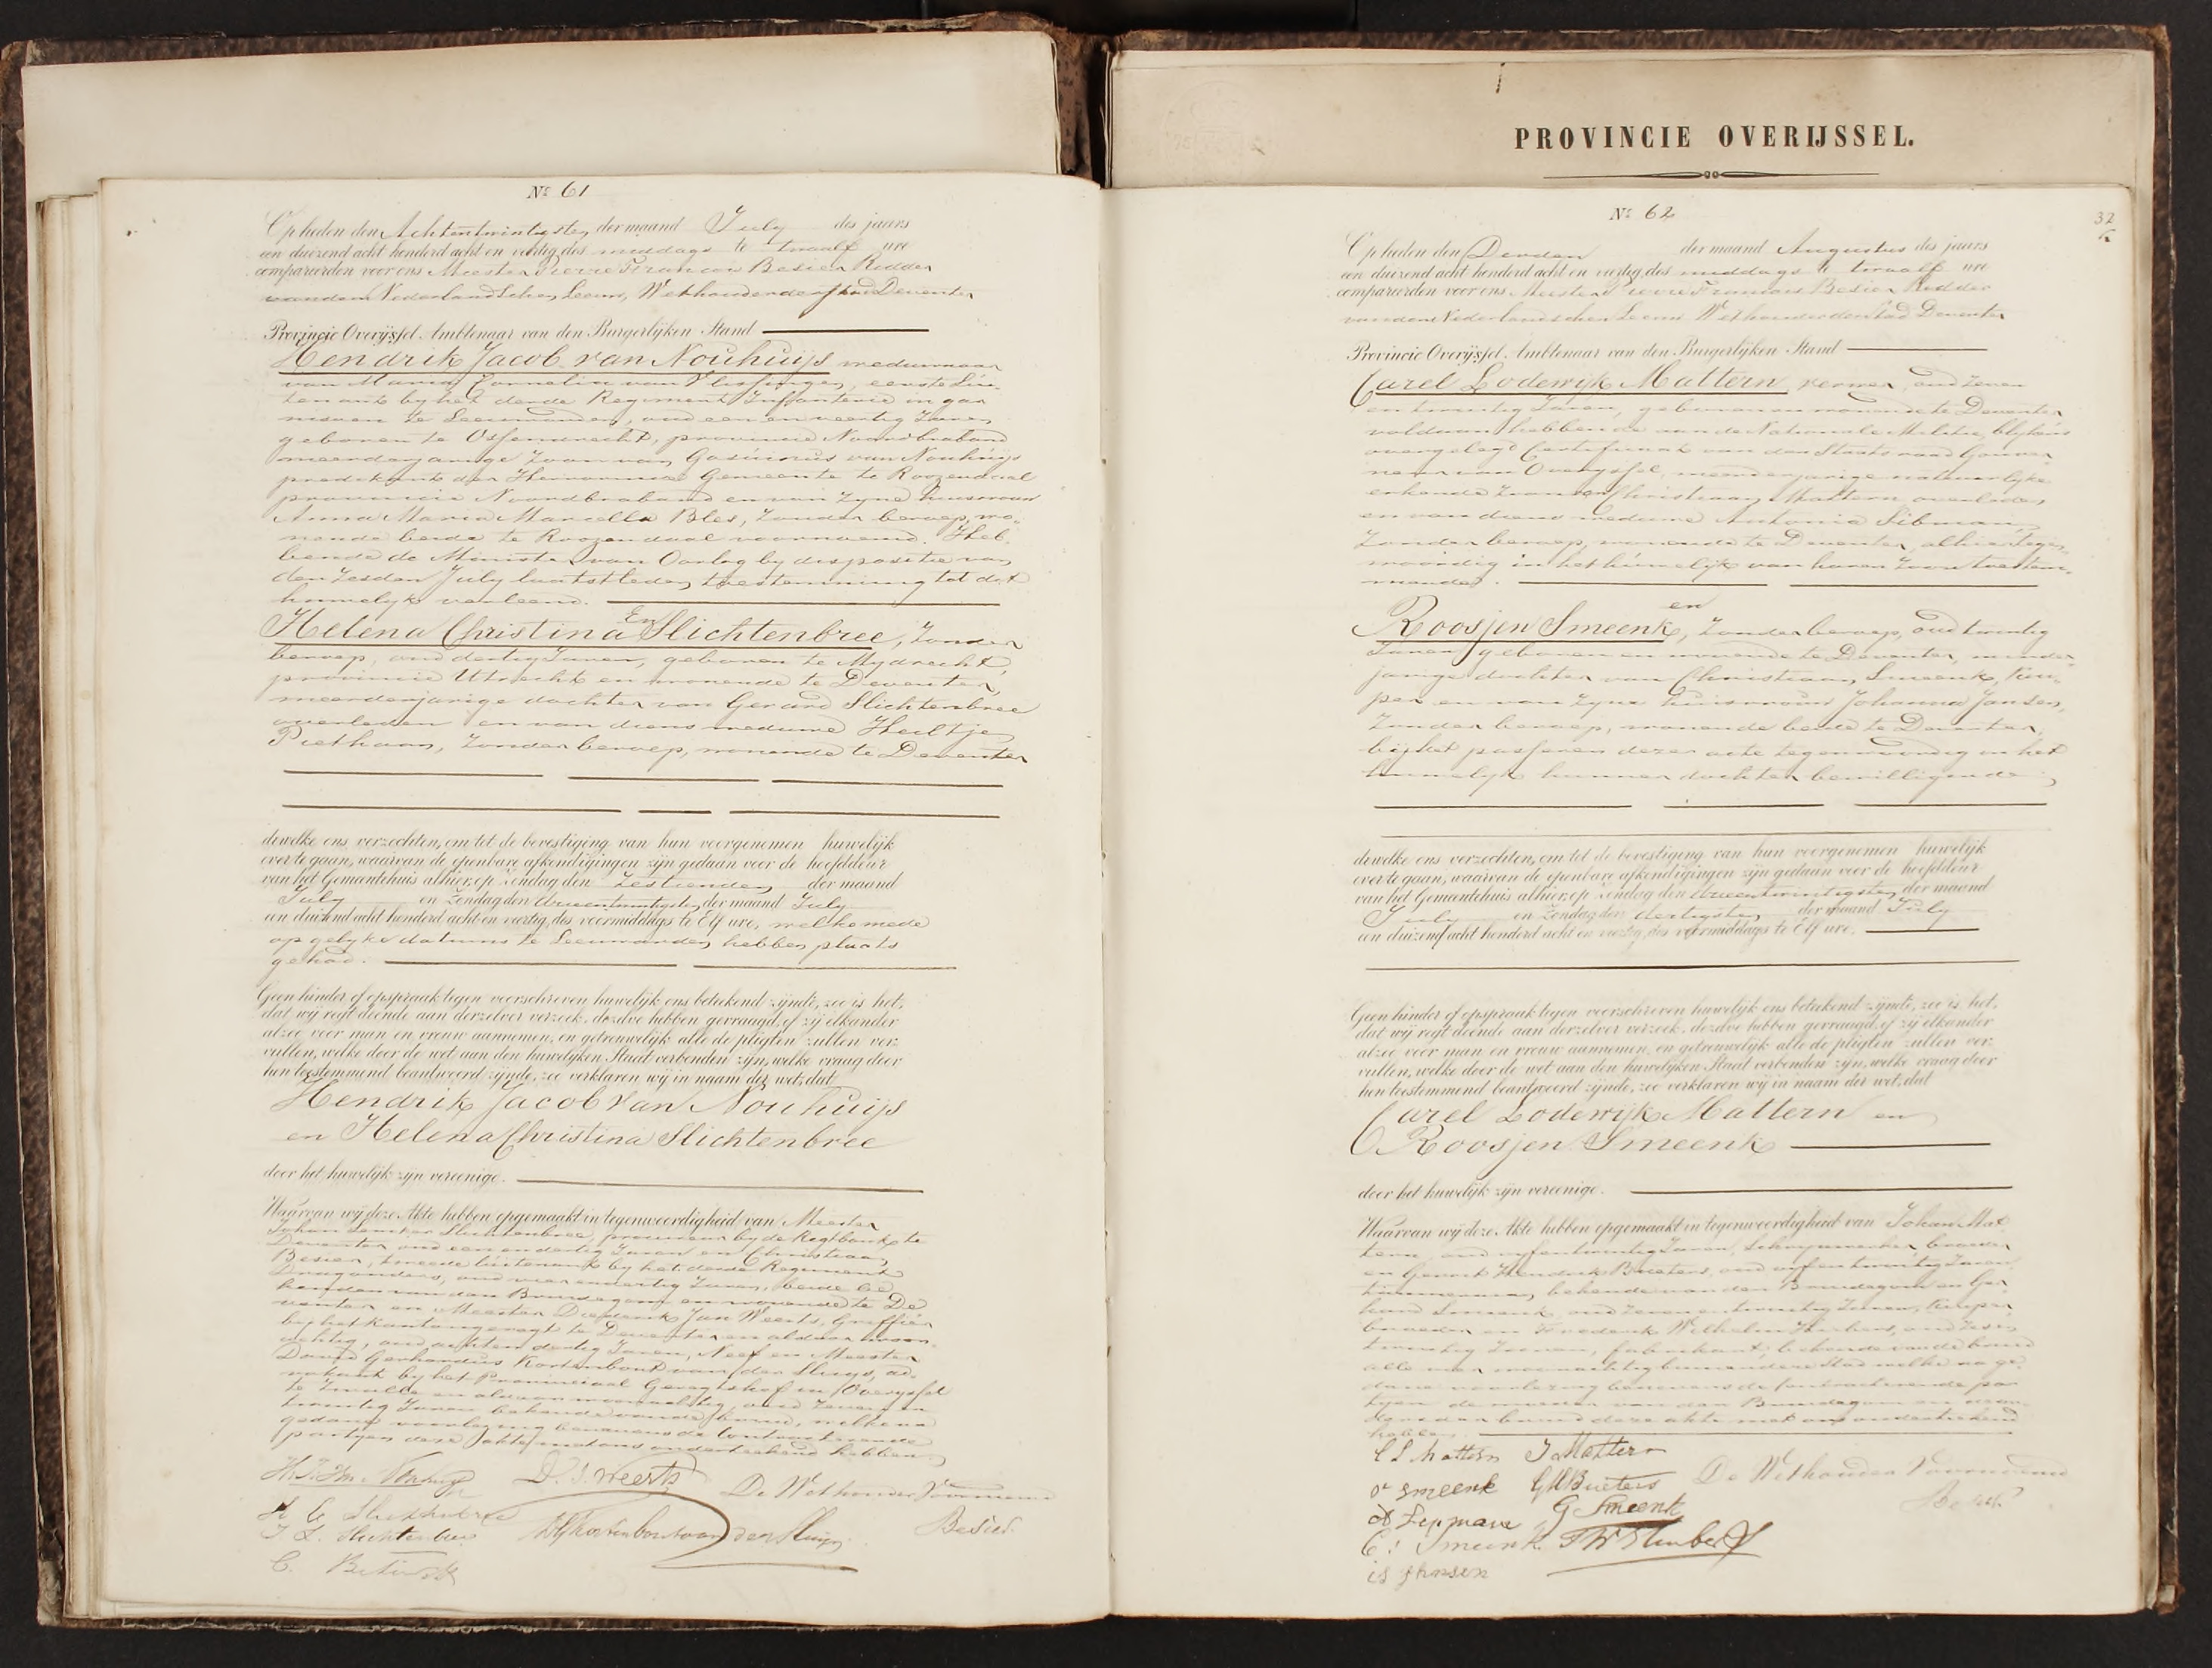 Nº 61
Op heden den Achtentwintigsten der maand July des jaars
een duizend acht honderd acht en veertig, des middags te twaalf ure
compareerden voor ons Meester Pierre Francois Besier Ridder
van den Nederlandschen Leeuw, Wethouder der stad Deventer
Provincie Overijssel, Ambtenaar van den Burgerlijken Stand
Hendrik Jacob van Nouhuijs weduwnaar
van Maria Cornelia van Vlissingen, eerste Lui-
tenant by het derde Regiment Infanterie in gar
nisoen te Leeuwarden, oud een en veertig Jaren
geboren te Ossendrecht, provincie Noordbraband
meerderjarige Zoon van Gosuinus van Nouhuijs
predikant der Hervormde Gemeente te Roozendaal
provincie Noordbraband en van Zyne huisvrouw
Anna Maria Marcella Bles, Zonder beroep, wo-
nende beide te Roozendaal voornoemd. Heb-
bende de Minister van Oorlog by dispositie van
den Zesden July laatstleden toestemming tot dit
huwelyk verleend.
En
Helena Christina Slichtenbree, Zonder
beroep, oud dertig Jaren, geboren te Mydrecht,
provincie Utrecht en wonende te Deventer,
meerderjarige dochter van Gerard Slichtenbree
overleden en van diens weduwe Heiltje
Piethaan, Zonder beroep, wonende te Deventer
dewelke ons verzochten, om tot de bevestiging van hun voorgenomen huwelijk
over te gaan, waarvan de openbare afkondigingen zijn gedaan voor de hoofddeur
van het Gemeentehuis alhier, op Zondag den Zestienden der maand
July en Zondag den drieentwintigsten der maand July
een duizend acht honderd acht en veertig, des voormiddags te Elf ure, welke mede
op gelyke datums te Leeuwarden hebben plaats
gehad.
Geen hinder of opspraak tegen voorschreven huwelijk ons bekend zijnde, zoo is het,
dat wij regt doende aan derzelver verzoek, dezelve hebben gevraagd, of zij elkander
alzoo voor man en vrouw aannemen, en getrouwelijk alle de pligten zullen ver-
vullen, welke door de wet aan den huwelijken Staat verbonden zijn, welke vraag door
hen toestemmend beantwoord zijnde, zoo verklaren wij in naam der wet, dat
Hendrik Jacob van Nouhuijs
en Helena Christina Slichtenbree
door het huwelijk zijn vereenigd.
Waarvan wij deze Akte hebben opgemaakt in tegenwoordigheid van Meester
Johan Slichtenbree, procureur by de Regtbank te
Deventer oud een en dertig Jaren en Christiaan
Besier, tweede luitenant by het derde Regiment
Dragonders, oud vier en dertig Jaren, beide be
kenden van den Bruidegom en wonende te De
venter en Meester Diederik Jan Weerts, Griffier
by het Kantongeregt te Deventer en aldaar woon-
achtig, oud acht en dertig Jaren, Neef en Meester
David Gerhardus Kortenbout van der Sluys, ad-
vokaat by het Provinciaal Geregtshof in Overyssel
te Zwolle en aldaar woonachtig, oud Zeven en
twintig Jaren bekende van de bruid, welke na
gedane voorlezing benevens de Contracterende
partyen deze Akte met ons onderteekend hebben
D. J. Weerts
De Wethouder Voornoemd
Besier
DG Kortenbout van der Sluys
PROVINCIE OVERIJSSEL.
32
Nº 62
Op heden den Derden der maand Augustus des jaars
een duizend acht honderd acht en veertig, des middags te twaalf ure
compareerden voor ons Meester Pierre Francois Besier Ridder
van den Nederlandschen Leeuw Wethouder der stad Deventer
Provincie Overijssel, Ambtenaar van den Burgerlijken Stand
Carel Lodewijk Mattern, verwer, oud Zeven
en twintig Jaren, geboren en wonende te Deventer
voldaan hebbende aan de Nationale Militie, blykens
overgelegd Certificaat van den Staatsraad Gouver
neur van Overyssel, meerderjarige natuurlyke
erkende Zoon van Christiaan Mattern overleden
en van diens weduwe Antonia Sibman
Zonder beroep, wonende te Deventer, alhier tegen-
woordig in het huwelijk van haren Zoon toestem-
mende.
en
Roosjen Smeenk, Zonder beroep, oud twintig
Jaren, geboren en wonende te Deventer, minder-
jarige dochter van Christiaan Smeenk, Kui-
per en van zyne huisvrouw Johanna Jansen,
Zonder beroep, wonende beide te Deventer,
bij het passeren dezer acte tegenwoordig in het
huwelyk hunner dochter bewilligende
dewelke ons verzochten, om tot de bevestiging van hun voorgenomen huwelijk
over te gaan, waarvan de openbare afkondigingen zijn gedaan voor de hoofddeur
van het Gemeentehuis alhier, op Zondag den drieentwintigsten der maand
July en Zondag den dertigsten der maand July
een duizend acht honderd acht en veertig, des voormiddags te Elf ure.
Geen hinder of opspraak tegen voorschreven huwelijk ons bekend zijnde, zoo is het,
dat wij regt doende aan derzelver verzoek, dezelve hebben gevraagd, of zij elkander
alzoo voor man en vrouw aannemen, en getrouwelijk alle de pligten zullen ver-
vullen, welke door de wet aan den huwelijken Staat verbonden zijn, welke vraag door
hen toestemmend beantwoord zijnde, zoo verklaren wij in naam der wet, dat
Carel Lodewijk Mattern en
Roosjen Smeenk
door het huwelijk zijn vereenigd.
Waarvan wij deze Akte hebben opgemaakt in tegenwoordigheid van Johan Mat
tern, oud vyfentwintig Jaren, Schrynwerker, broeder
en Gerrit Hendrik Bueters, oud vyfentwintig Jaren
timmerman, bekende van den Bruidegom en Ger
hard Smeenk, oud Zeven en twintig Jaren, Kuiper
broeder en Frederik Wilhelm oud Zes en
twintig Jaren, fabrikant, bekende van de bruid
alle woonachtig binnen deze Stad welke na ge
dane voorlezing benevens de Contracterende par
tyen de moeder van den Bruidegom en
der bruid deze akte met ons onderteekend
hebben.
C L Mattern J Mattern
R Smeenk GH Bueters De Wethouder Voornoemd
G Smeenk Besier
C: Smeenk
Jansen